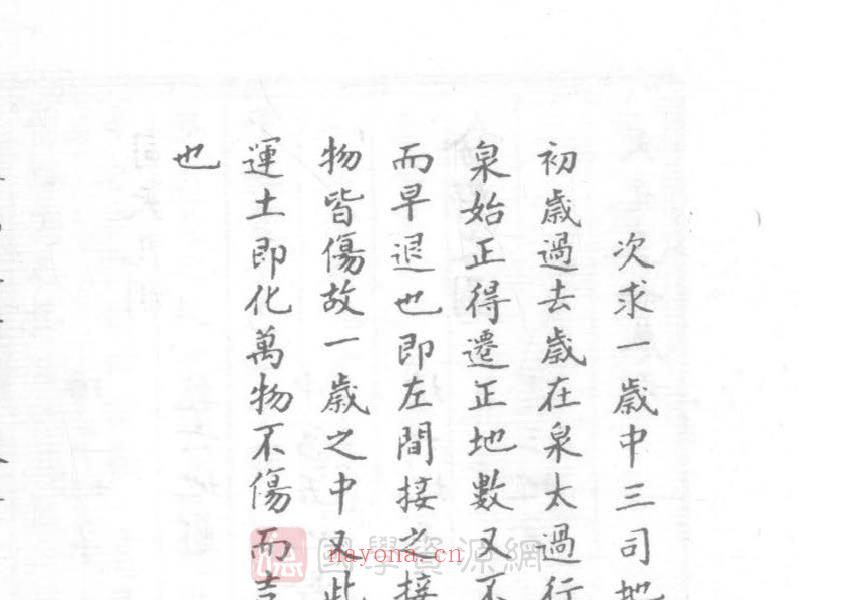 次求一歲中三司地
初歲過去歲在泉太過行
泉始正得遷正地數又不
而早退也即左間接之接
物皆傷故一歲之中又此
運土即化萬物不傷而吉
也
國學資源網
nayona.cn